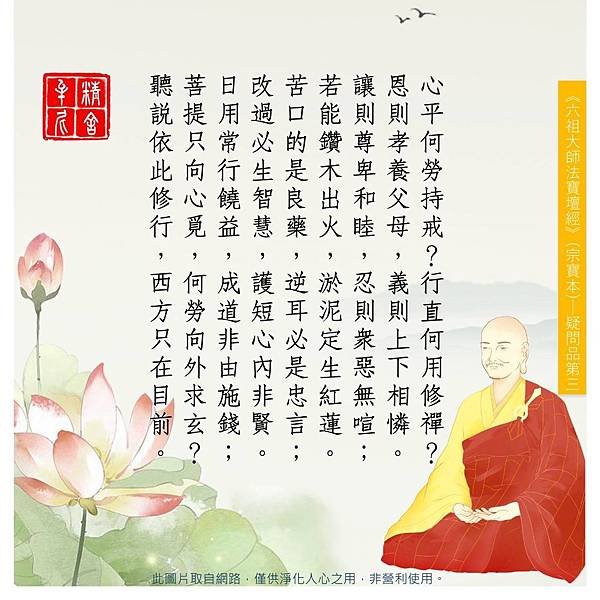 《六祖大師法寶壇經》(宗寶本)─疑問品第三
心平何勞持戒？行直何用修禪？
恩則孝養父母，義則上下相憐。
讓則尊卑和睦，忍則衆惡無喧；
若能鑽木出火，淤泥定生紅蓮。
苦口的是良藥，逆耳必是忠言；
改過必生智慧，護短心內非賢。
日用常行饒益，成道非由施錢；
菩提只向心覓，何勞向外求玄？
聽說依此修行，西方只在目前。
精舍
此圖片取自網路，僅供淨化人心之用，非營利使用。